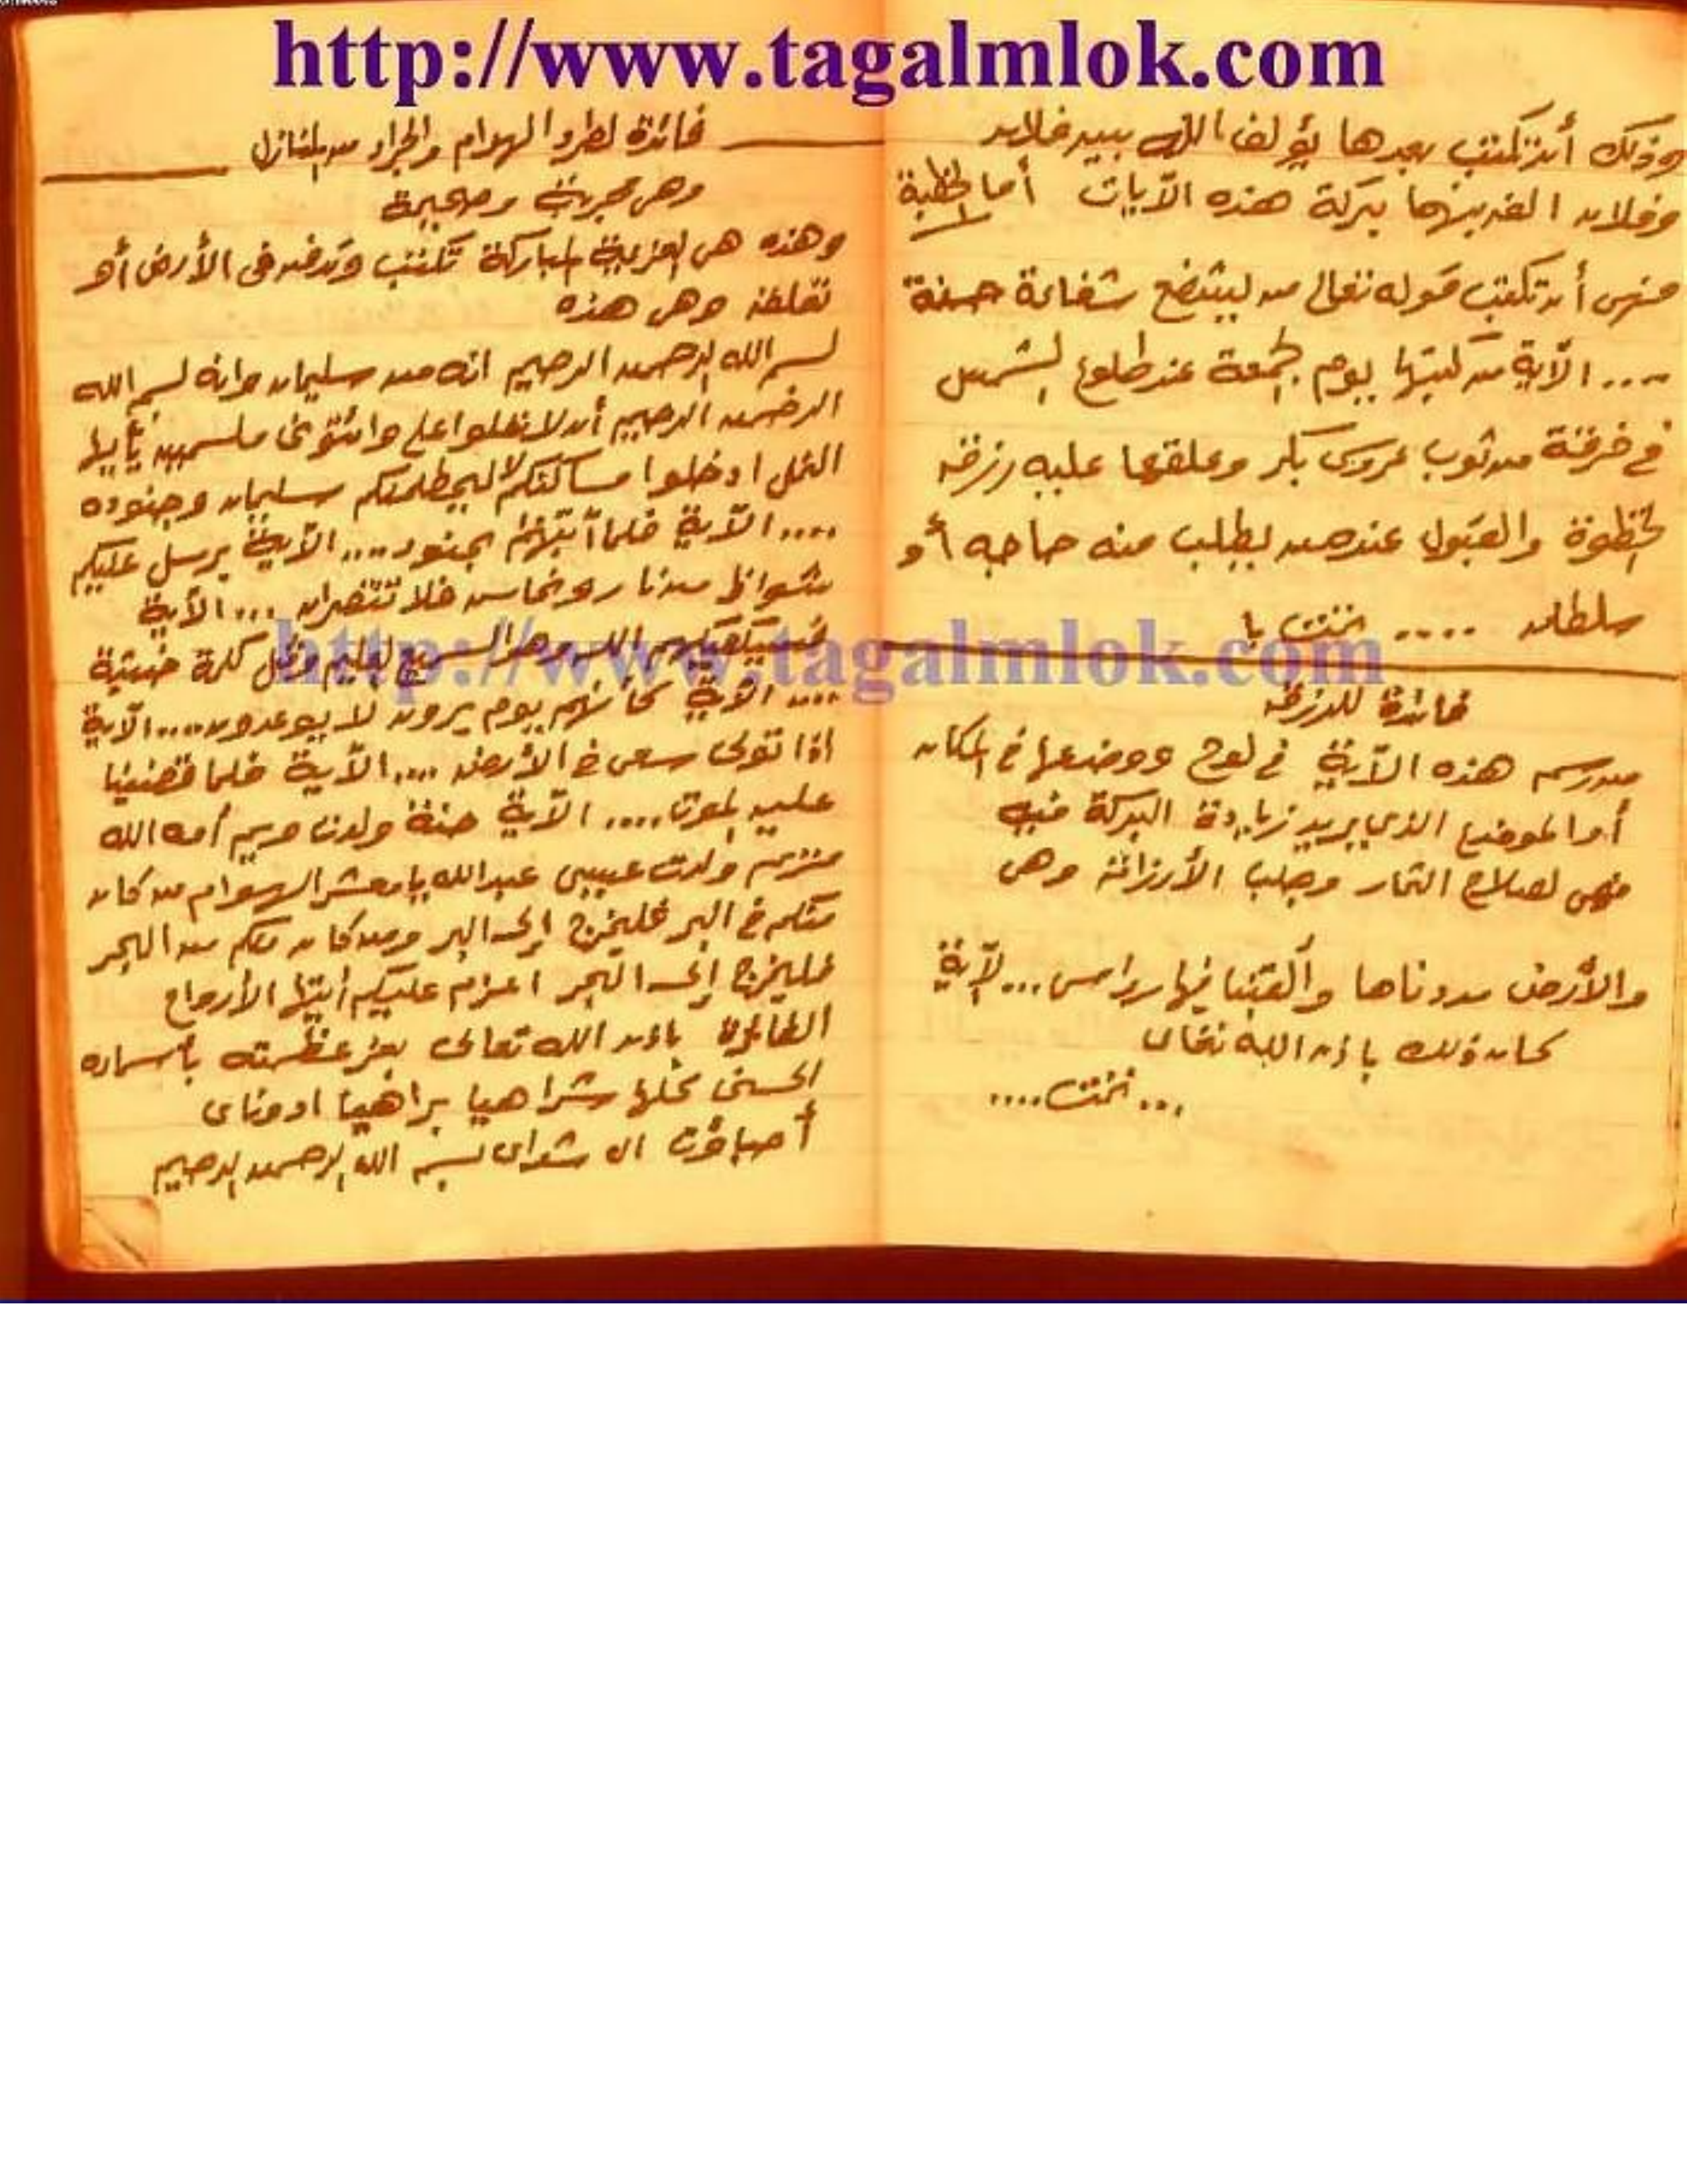 http://www.tagalmlok.com
وذلك أن تكتب بعدها يؤلف الله بين فلان
وفلان ألف بينهما ببركة هذه الآيات أما لخطبة
فهى أن تكتب قوله تعالى من يشفع شفاعة حسنة
.... الآية من كتبها يوم الجمعة عند طلوع الشمس
فى خرقة من ثوب عروس بكر وعلقها عليه رزق
لحظوة والقبول عند من يطلب منه حاجه أو
سلطان ..... تمت با
فائدة للرزق
من رسم هذه الآية فى لوح ووضعها فى المكان
أو الموضع الذى يريد زيادة البركة فيه
فهى لصلاح الثمار وجلب الأرزاق وهى
والأرض مددناها وألقينا فيها رواسى... لآية
كان ذلك بإذن الله تعالى
... تمت ....
فائدة لطرد الهوام والجراد من المنازل
وهى مجربة وصحيحة
وهذه هى العزيمة المباركة تكتب وتدفن فى الأرض أو
تعلق وهى هذه
بسم الله الرحمن الرحيم انه من سليمان وانه بسم الله
الرحمن الرحيم أن لا تعلوا على وائتونى مسلمين يأيها
النمل ادخلوا مساكنكم لا يحطمنكم سليمان وجنوده
.... الآية فلنأتينهم بجنود .... الآية يرسل عليكم
شواظ من نار ونحاس فلا تنتصران ... الآية
فسيكفيكهم الله وهو السميع العليم ومثل كلمة خبيثة
.... الآية كأنهم يوم يرون لا يوعدون .... الآية
اذا تولى سعى فى الأرض .... الآية فلما قضينا
عليه الموت .... الآية حنة ولدت مريم أمة الله
مريم ولدت عيسى عبد الله يا معشر الهوام من كان
منكم فى البر فليخرج إلى البر ومن كان منكم من البحر
فليخرج إلى البحر اعزم عليكم أيتها الأرواح
الطاهرة بإذن الله تعالى بعز عظمته بأسماءه
الحسنى كلها شراهيا براهيا ادوناى
أصباؤت ال شداى بسم الله الرحمن الرحيم
http://www.tagalmlok.com